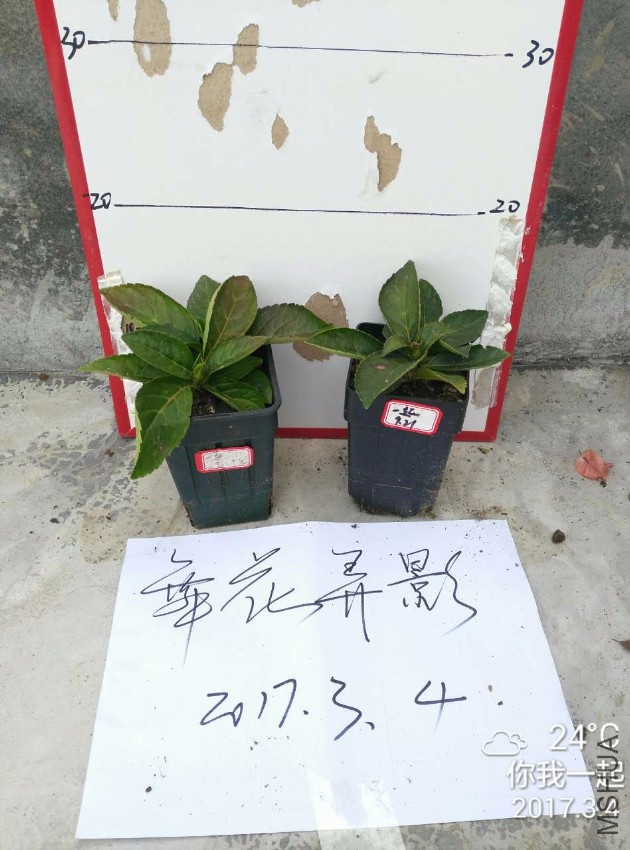 30 30
20 20
9.21
華花弄影
2017.3.4.
24°C
你我一起
2017.3.4
MSHUA